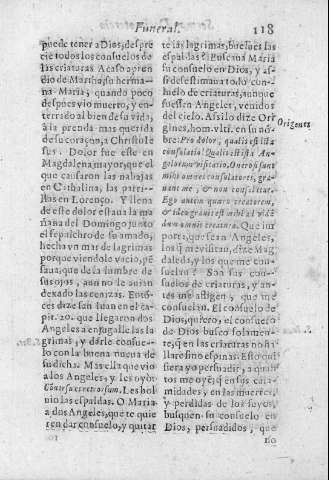 Funeral.
118
puede tener a Dios, despre
cie todos los consuelos de
las criaturas. Acaso apren
dio de Martha, su herma-
na Maria; quando poco
despues vio muerto, y en-
terrado al bien de su vida,
à la prenda mas querida
de su coraçon, a Christo Ie
sus. Dolor fue este en
Magdalena mayor, que el
que causaron las nabajas
en Cathalina, las parri-
llas en Lorenço. Y llena
de este dolor estaua la ma
ñana del Domingo junto
el sepulchro de su amado,
hecha vn mar de lagrimas
porque viendole vacio, pé
saua, que de la lumbre de
sus ojos, aun no le auian
dexado las cenizas. Enton
ces dize san Iuan en el ca-
pit. 20. que llegaron dos
Angeles a enjugalle las la
grimas, y darle consue-
lo con la buena nueua de
su dicha. Mas ella que vio
a los Angeles, y les oyò:
Conuersa est retrorsum. Les bol
uio las espaldas. O Maria
a dos Angeles, que te quie
ren dar consuelo, y quitar
te las lagrimas, buelues las
espaldas? Buscaua Maria
su consuelo en Dios, y as-
si desestimaua todo con-
suelo de criaturas, aunque
fuessen Angeles, venidos
del cielo. Assi lo dize Ori
gines, hom. vlti. en su nó
bre: Pro dolor, qualis est ista
consolatio! Qualis est ista An-
gelorum visitatio. Onerosi sunt
mihi omnes consolatores, gra-
uant me, & non consolantur.
Ego autem quæro creatorem,
& ideo grauis est mihi ad vidé
dum omnis creatura. Que im
porta, que sean Angeles,
los que me visitan, dize Mag
dalena, y los que me con-
suelan? Son sus con-
suelos de criaturas, y an-
tes me afligen, que me
consuelan. El consuelo de
Dios quiero, el consuelo
de Dios busco solamen-
te, q en las criaturas no ha
llare sino espinas. Esto qui
siera yo persuadir, a quan
tos me oyè, q en sus cala
midades, y en las muertes,
y perdidas de los suyos,
busquen su consuelo en
Dios, persuadidos, que
no
Origenes